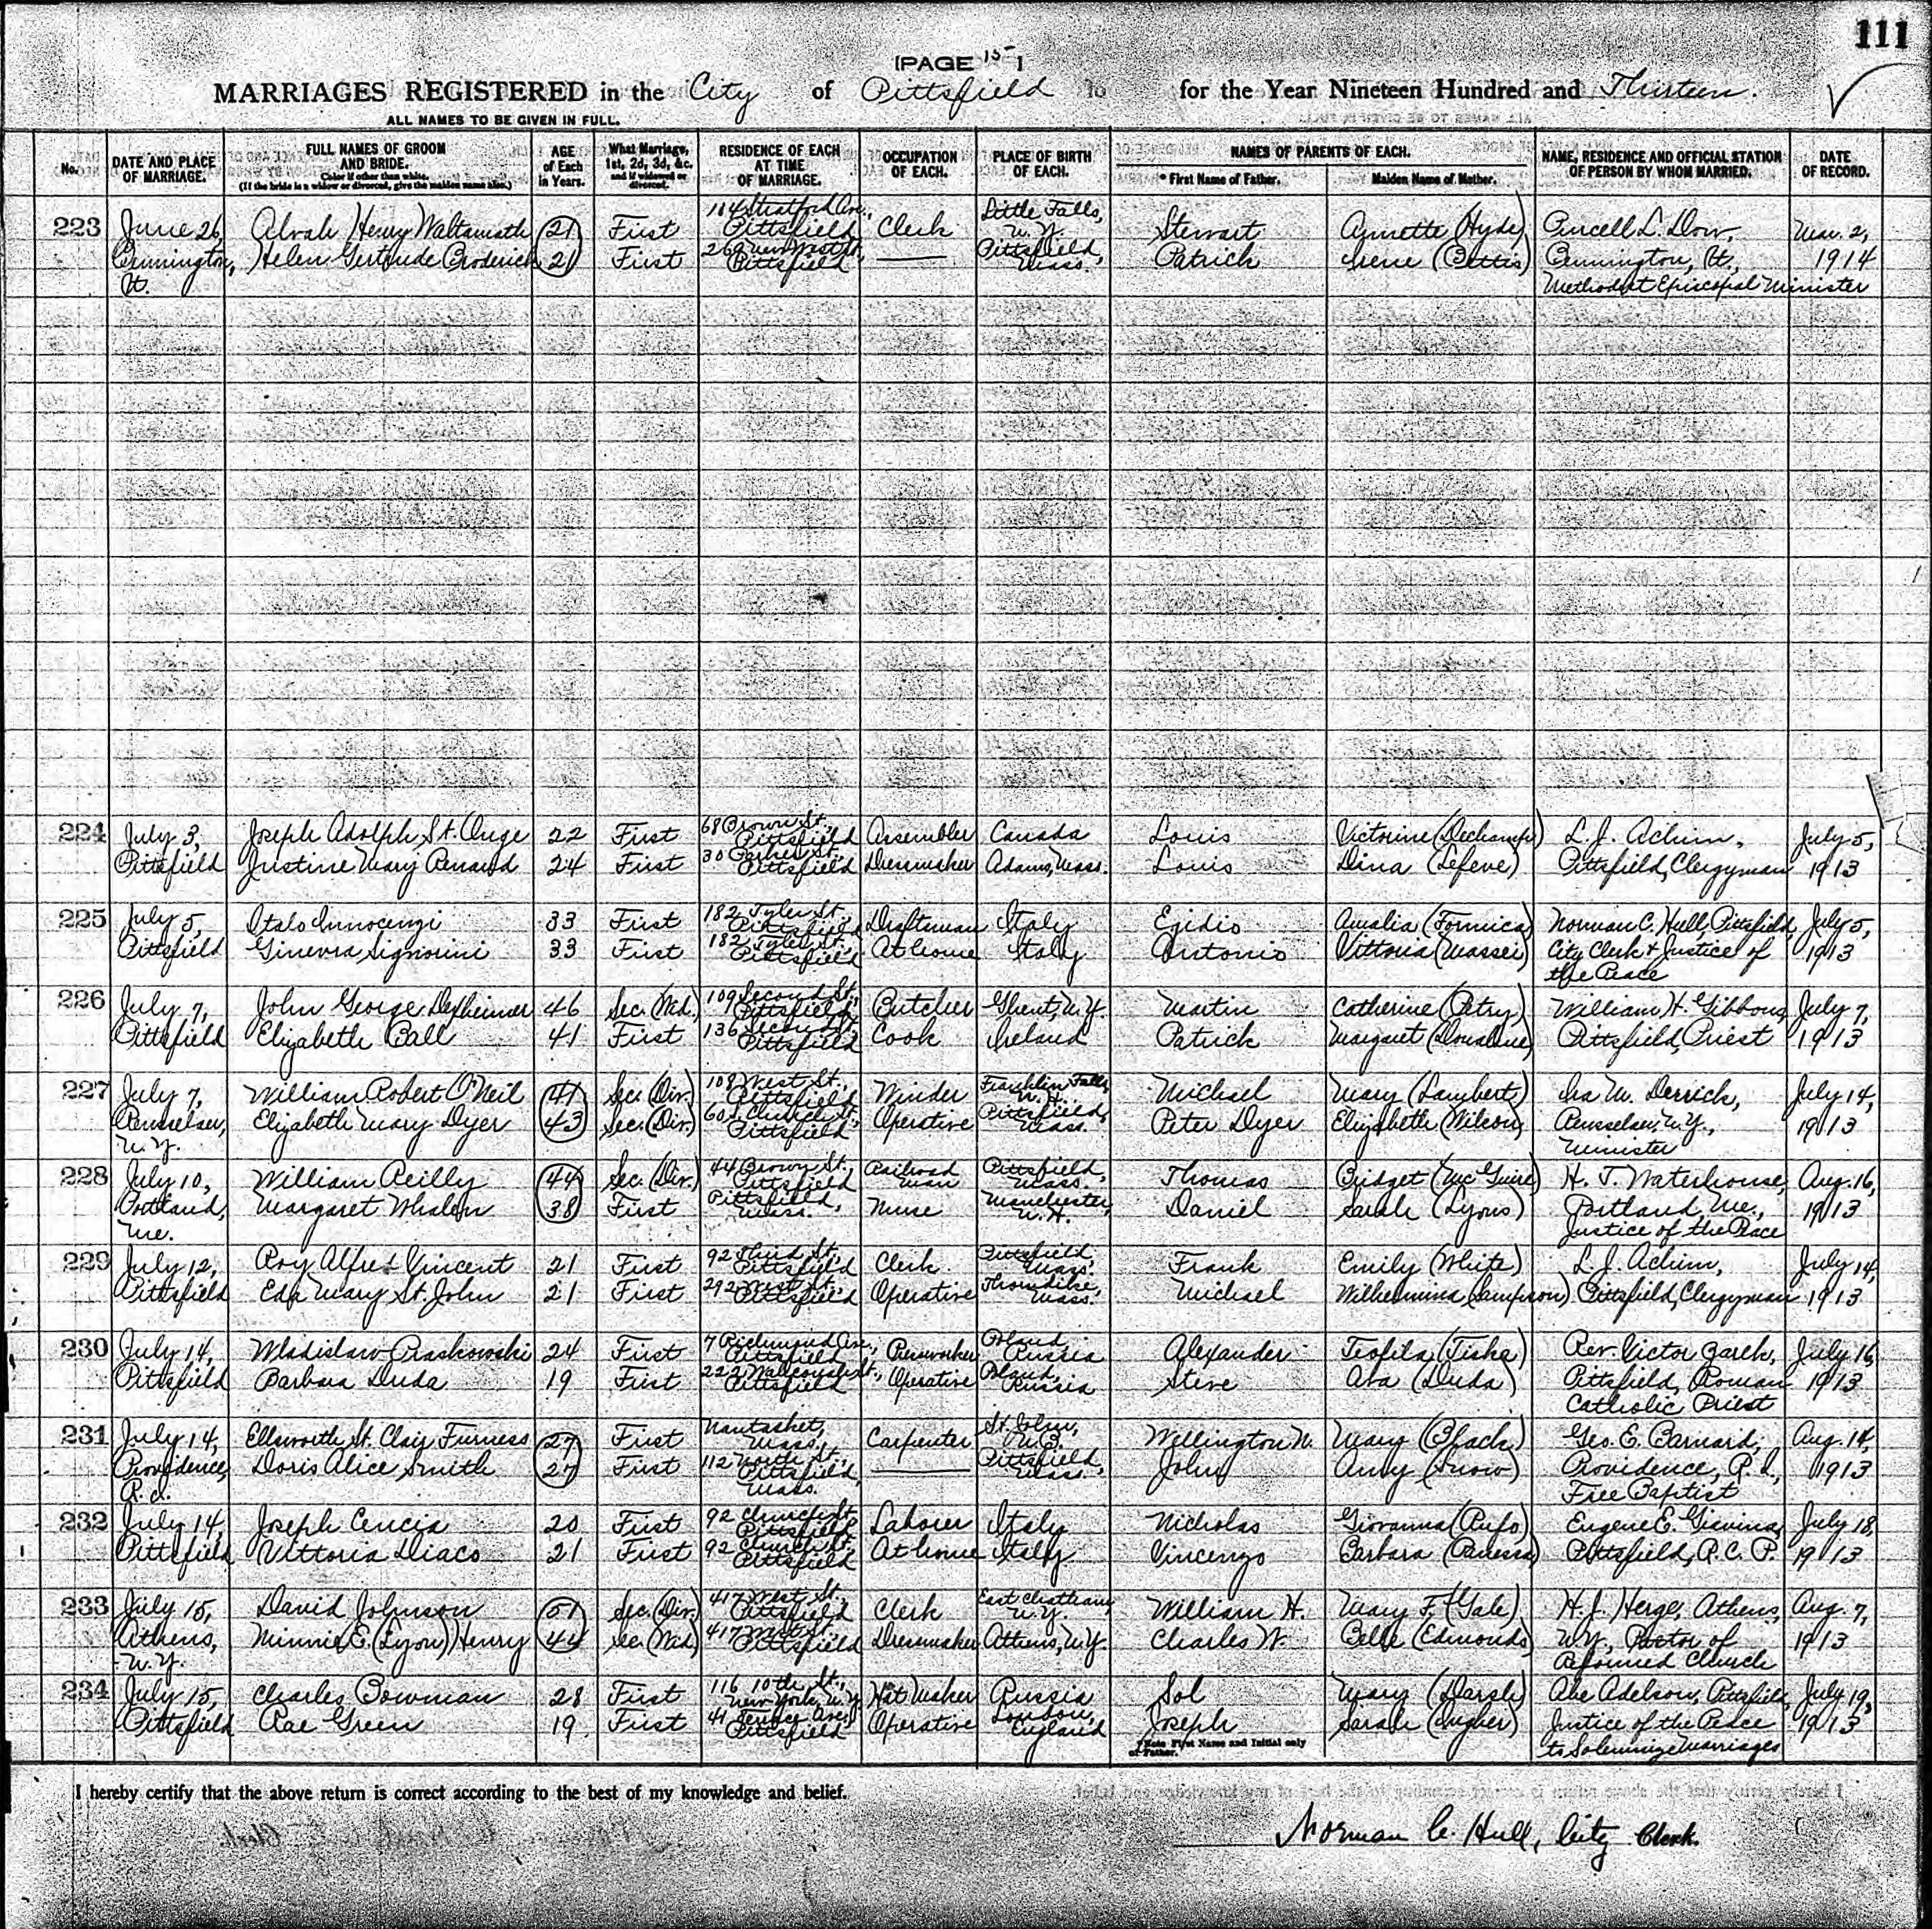 111
[PAGE 15]
MARRIAGES REGISTERED in the City of Pittsfield for the Year Nineteen Hundred and Thirteen.
ALL NAMES TO BE GIVEN IN FULL.
No. DATE AND PLACE OF MARRIAGE. FULL NAMES OF GROOM AND BRIDE. Color if other than white. (If the bride is a widow or divorced, give the maiden name also.) AGE of Each in Years. What Marriage, 1st, 2d, 3d, &c. and if widowed or divorced. RESIDENCE OF EACH AT TIME OF MARRIAGE. OCCUPATION OF EACH. PLACE OF BIRTH OF EACH. NAMES OF PARENTS OF EACH. * First Name of Father. Maiden Name of Mother. NAME, RESIDENCE AND OFFICIAL STATION OF PERSON BY WHOM MARRIED. DATE OF RECORD.
223 June 26, Alvah Henry Waltamath 21 First 114 Stratford Ave., Pittsfield Clerk Little Falls, N.Y. Stewart Annette (Hyde) Purcell L. Dow, Mar. 2,
Bennington, Helen Gertrude Broderick 21 First Pittsfield Pittsfield, Mass. Patrick Irene (Bettis) Bennington, Vt., 1914
Vt. Methodist Episcopal Minister
224 July 3, Joseph Adolph St. Onge 22 First 68 Brown St., Pittsfield Assembler Canada Louis Victorine (Dechamps) L. J. Achim, July 5,
Pittsfield Justine Mary Renaud 24 First 30 St. Pittsfield Dressmaker Adams, Mass. Louis Dina (Lefeve) Pittsfield, Clergyman 1913
225 July 5, Italo Innocenzi 33 First 182 Tyler St., Pittsfield Draftsman Italy Egidio Amalia (Formica) Norman C. Hull, Pittsfield, July 5,
Pittsfield Ginevra Signorini 33 First 182 Tyler St., Pittsfield At home Italy Antonio Vittoria (Massei) City Clerk & Justice of 1913
the Peace
226 July 7, John George Dexheimer 46 Sec. (Wd.) 109 Second St., Pittsfield Butcher Ghent, N.Y. Martin Catherine (Petry) William H. Gibbons, July 7,
Pittsfield Elizabeth Ball 41 First 136 Second St., Pittsfield Cook Ireland Patrick Margaret (Donahue) Pittsfield, Priest 1913
227 July 7, William Robert O'Neil 41 Sec. (Div.) 108 West St., Pittsfield Winder Franklin Falls, N.H. Michael Mary (Lambert) Ira W. Derrick, July 14,
Rensselaer, Elizabeth Mary Dyer 43 Sec. (Div.) 60 Church St., Pittsfield Operative Pittsfield, Mass. Peter Dyer Elizabeth (Wilcox) Rensselaer, N.Y., 1913
N.Y. Minister
228 July 10, William Reilly 44 Sec. (Div.) 44 Brown St., Pittsfield Railroad man Pittsfield, Mass. Thomas Bridget (McGuire) H. T. Waterhouse, Aug. 16,
Portland, Margaret Whalen 38 First Pittsfield, Mass. Nurse Manchester, N.H. Daniel Sarah (Lyons) Portland, Me., 1913
Me. Justice of the Peace
229 July 12, Roy Alfred Vincent 21 First 92 Third St., Pittsfield Clerk Pittsfield, Mass. Frank Emily (White) L. J. Achim, July 14,
Pittsfield Eda Mary St. John 21 First 292 West St., Pittsfield Operative Thorndike, Mass. Michael Wilhelmina (Sampson) Pittsfield, Clergyman 1913
230 July 14, Wladislaw Praskowski 24 First 7 Richmond Ave., Pittsfield Boxworker Poland Russia Alexander Teofila (Tiska) Rev. Victor Zarek, July 16,
Pittsfield Barbara Duda 19 First 222 Wahconah St., Pittsfield Operative Poland, Russia Steve Ava (Duda) Pittsfield, Roman 1913
Catholic Priest
231 July 14, Ellsworth St. Clair Furness 27 First Nantasket, Mass. Carpenter St. John, N.B. Wellington W. Mary (Black) Geo. E. Barnard, Aug. 14,
Providence, Doris Alice Smith 27 First 112 North St., Pittsfield, Mass. Pittsfield, Mass. John Amy (Snow) Providence, R.I., 1913
R.I. Free Baptist
232 July 14, Joseph Cencia 20 First 92 Church St., Pittsfield Laborer Italy Nicholas Giovanna (Rufo) Eugene E. July 18,
Pittsfield Vittoria Diaco 21 First 92 Church St., Pittsfield At home Italy Vincenzo Barbara Pittsfield, R.C.P. 1913
233 July 15, David Johnson 51 Sec. (Div.) 417 West St., Pittsfield Clerk East Chatham, N.Y. William H. Mary F. (Gale) H. J. Herge, Athens, Aug. 7,
Athens, Minnie E. (Lyon) Henry 44 Sec. (Wd.) 417 West St., Pittsfield Dressmaker Athens, N.Y. Charles W. Belle (Edmonds) N.Y., Pastor of 1913
N.Y. Reformed Church
234 July 15, Charles Bowman 28 First 116 10th St., New York, N.Y. Hat Maker Russia Sol Mary (Darsh) Abe Adelson, Pittsfield, July 19,
Pittsfield Rae Green 19 First 41 Ave., Pittsfield Operative London, England Joseph Sarah Justice of the Peace 1913
*Note First Name and Initial only of Father. to Solemnize Marriages
I hereby certify that the above return is correct according to the best of my knowledge and belief.
Norman C. Hull, City Clerk.